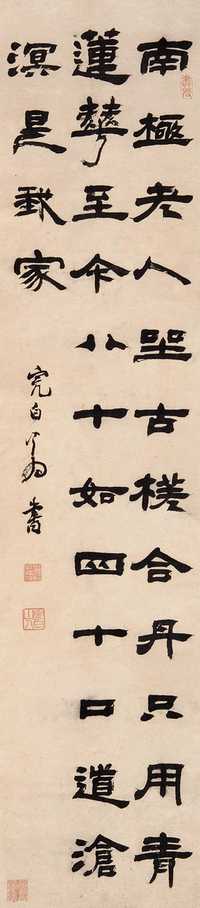 南極老人坐古槎合丹只用青
蓮華至今八十如四十口道滄
溟是我家
完白翁書